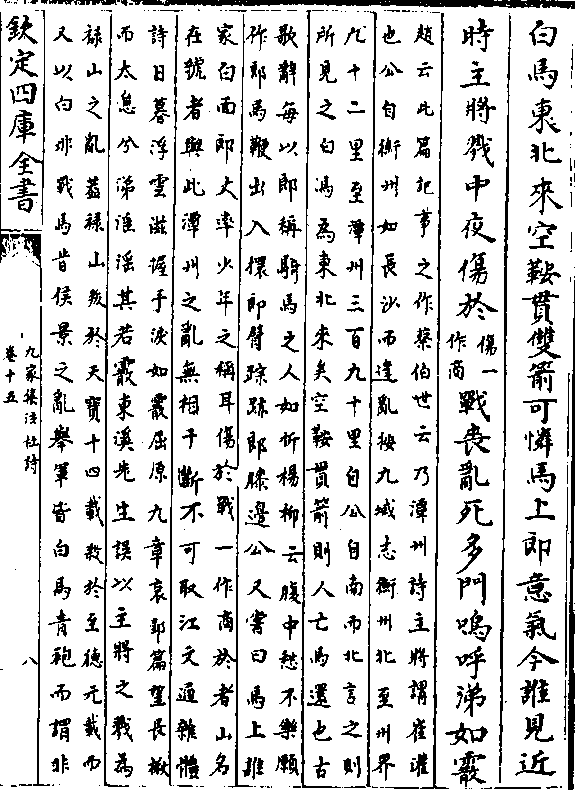 白馬東北來空鞍貫雙箭可憐馬上郎意氣今誰見近
時主將戮中夜傷於傷一作商戰喪亂死多門嗚呼涕如霰
趙云此篇記事之作蔡伯世云乃潭州詩主將謂崔瓘
也公自衡州如長沙而逢亂按九域志衡州北至州界
九十二里至潭州三百九十里自公自南而北言之則
所見之白馮為東北來矣空鞍貫箭則人亡馬還也古
歌辭每以郎稱騎馬之人如折楊柳云腹中愁不樂願
作郎馬鞭出入擐郎臂蹀跡郎膝邊公又嘗曰馬上誰
家白面郎大率少年之稱耳傷於戰一作商於者山名
在虢者與此潭州之亂無相干斷不可取江文通雜體
詩日暮浮雲滋握手淚如霰屈原九章哀郢篇望長楸
而太息兮涕淫淫其若霰東溪先生誤以主將之戮為
祿山之亂蓋祿山叛於天寶十四載殺於至德元載而
又以白非戰馬昔侯景之亂舉軍皆白馬青袍而謂非
欽定四庫全書
九家集注杜詩
卷十五
八